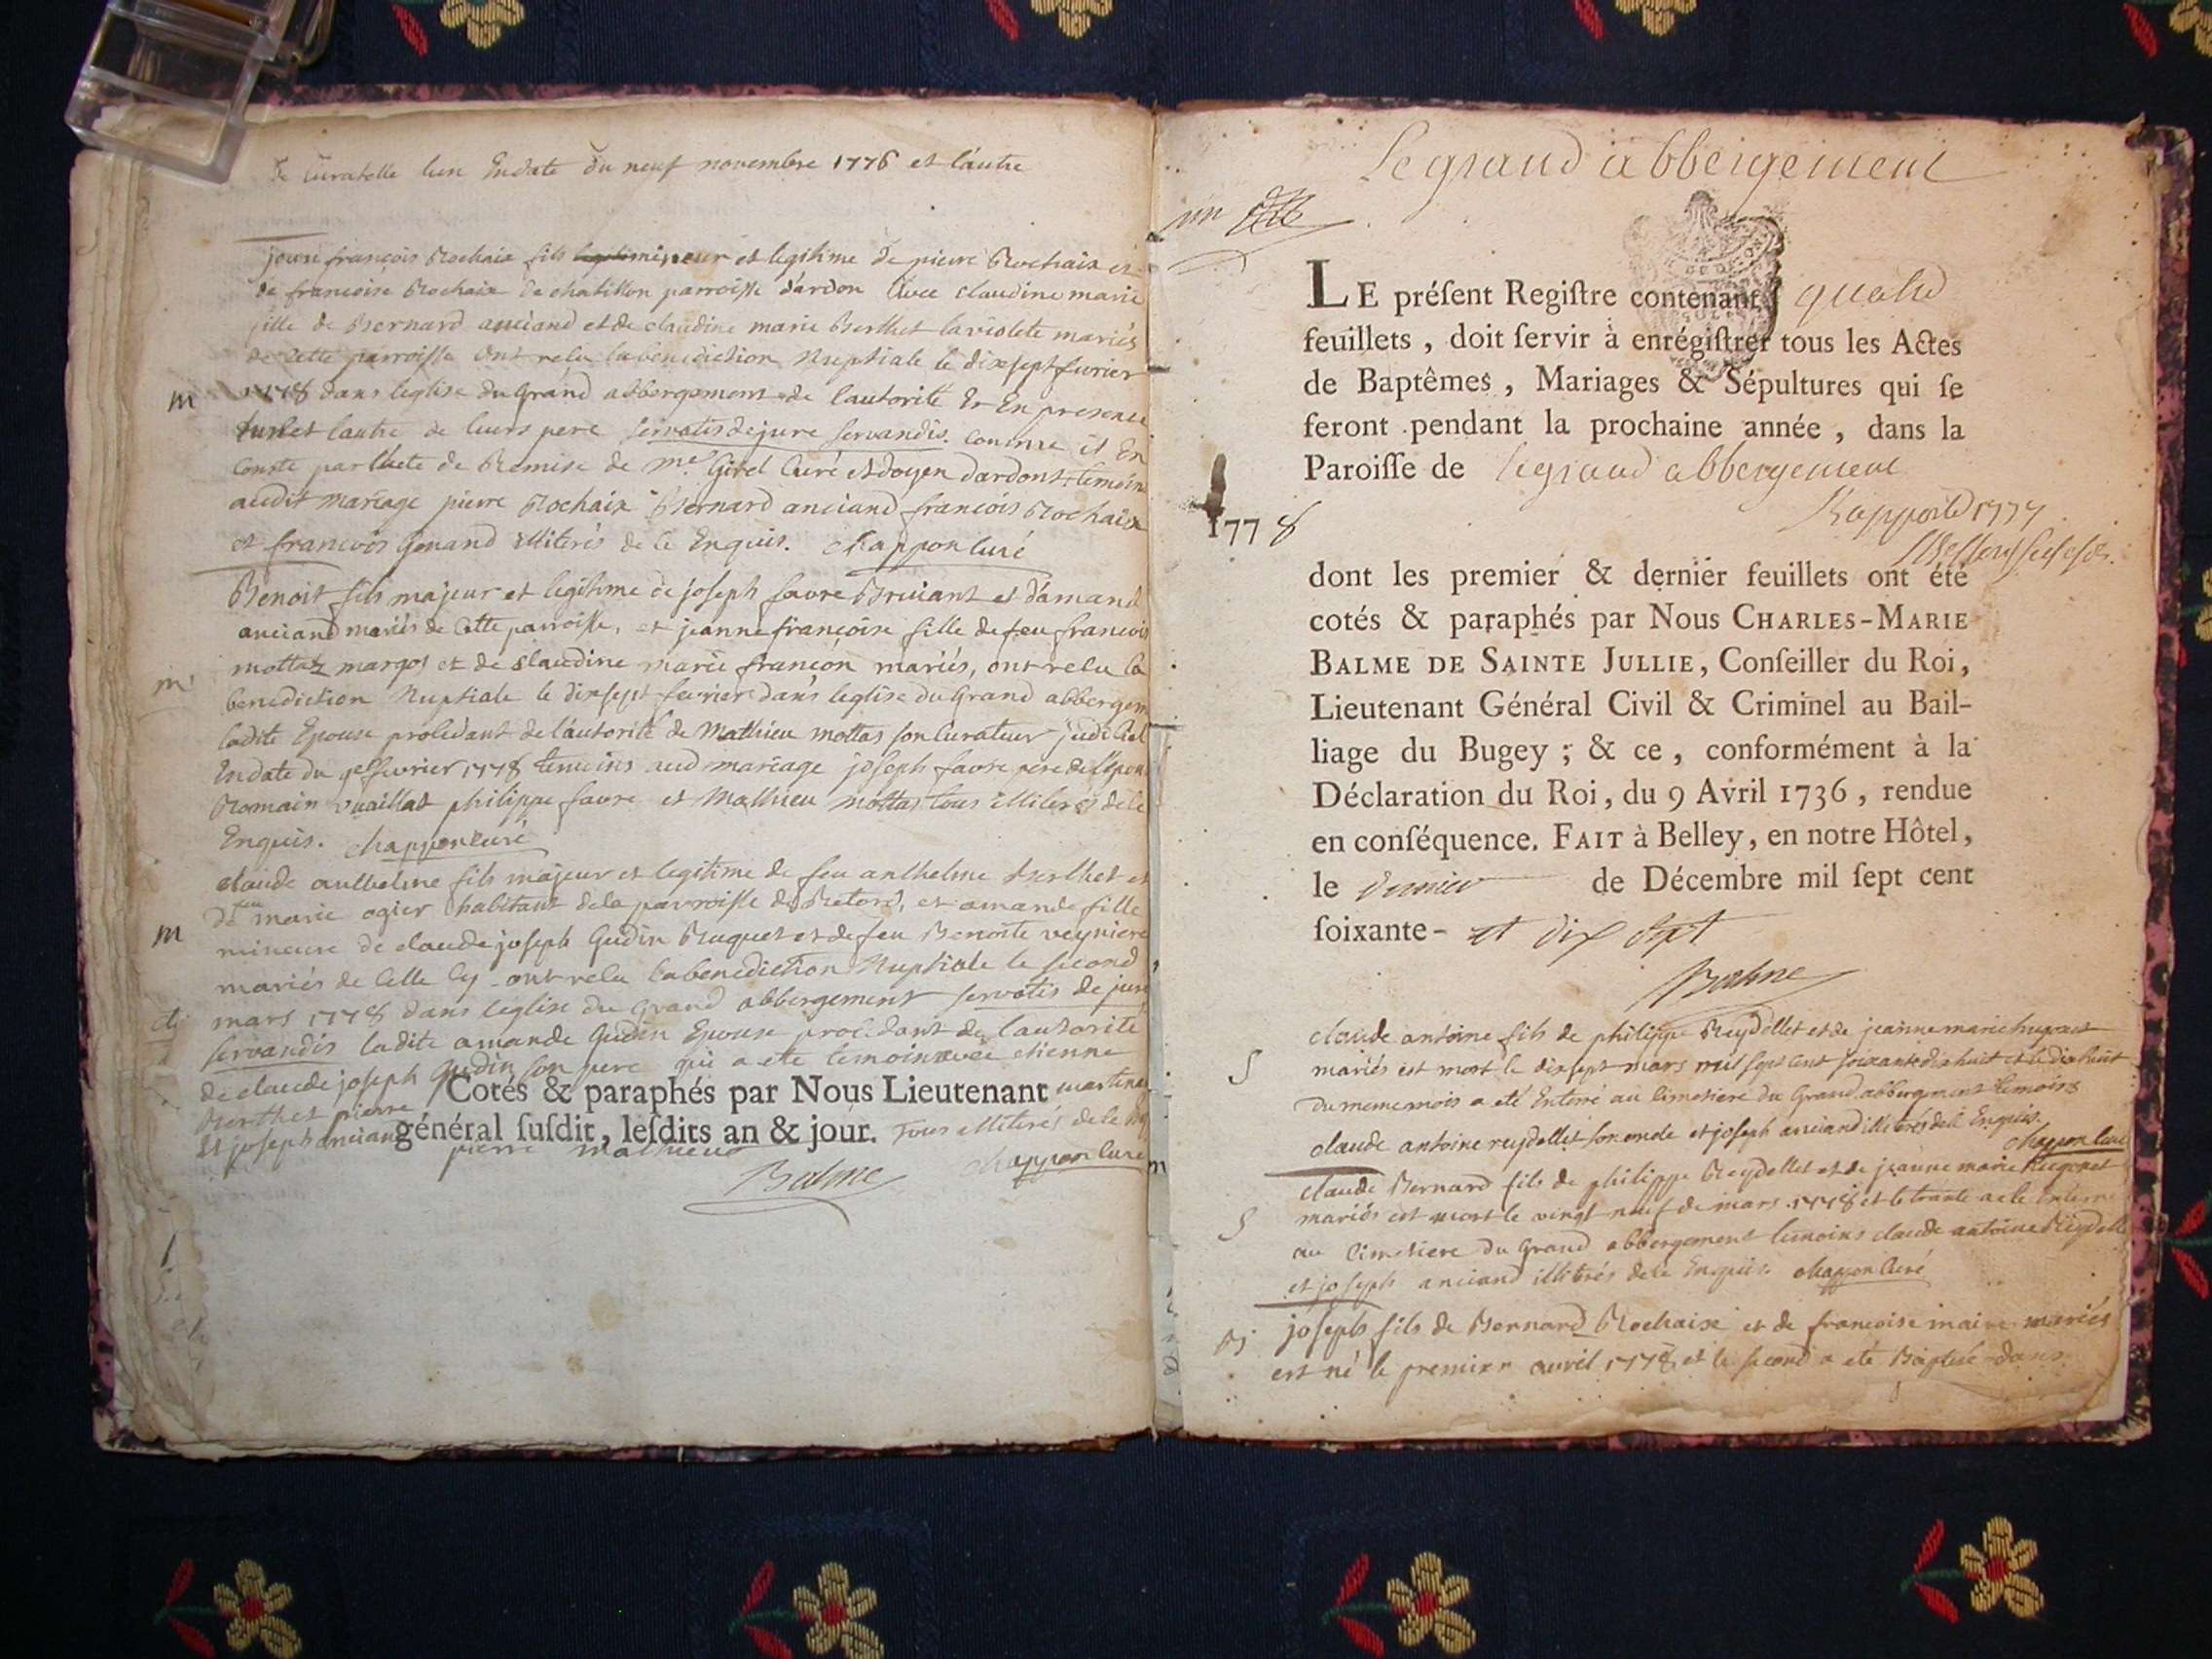 de curatelle lun Endate du neuf novembre 1776 et lautre
françois Rochaix fils mineur et legitime de pierre Rochaix et
de francoise Rochaix de chatillon parroisse dardon avec claudine marie
fille de Bernard anciand et de claudine marie Berthet la violete mariés
de cette parroisse ont relu la benediction Nuptiale le dixsept fevrier
m 1778 dans leglise du Grand abbergement de lautorité Et En presence
lun et lautre de leurs pere servatis de jure servandis. comme il En
conste par lacte de Remise de me Girel Curé et doyen dardont, temoins
audit mariage pierre Rochaix Bernard anciand francois Rochaix
et francois Genand illiterés de ce Enquis. chappon curé
Benoit fils majeur et legitime de joseph favre Bruiant et damand
anciand mariés de Cette parroisse, et jeanne françoise fille de feu francois
m mottaz margot et de claudine marie françon mariés, ont relu la
benediction Nuptiale le dixsept fevrier dans leglise du Grand abbergem
ladite Epouse procedant de lautorité de Mathieu mottas son Curateur judiciel
Endate du fevrier 1778 temoins aud mariage joseph favre pere de lepou
Romain vuaillat philippe favre et Mathieu mottas tous illiterés de ce
Enquis. chappon curé
claude anthelme fils majeur et legitime de feu anthelme Berthet et
de feu marie ogier habitant de la parroisse de Retord, et amande fille
m mineure de claude joseph Gudin Ruquet et de feu Benoite veyniere
mariés de celle Cy ont relu la benediction Nuptiale le second
mars 1778 dans leglise du Grand abbergement servatis de jure
servandis ladite amande Gudin Epouse procedant de lautorité
de claude joseph Gudin son pere qui a eté temoin avec etienne
Berthet pierre Cotés & paraphés par Nous Lieutenant martina
Et joseph anciand général ſuſdit, leſdits an & jour. Tous illiterés de ce
pierre mathieu
Balme chappon curé
Le grand abbergement
un
LE préſent Regiſtre contenant quatre
feuillets, doit ſervir à enrégiſtrer tous les Actes
de Baptêmes, Mariages & Sépultures qui ſe
feront pendant la prochaine année, dans la
Paroiſſe de Le grand abbergement
Rapporté 1777
1778
dont les premier & dernier feuillets ont été
cotés & paraphés par Nous CHARLES-MARIE
BALME DE SAINTE JULLIE, Conſeiller du Roi,
Lieutenant Général Civil & Criminel au Bail-
liage du Bugey; & ce, conformément à la
Déclaration du Roi, du 9 Avril 1736, rendue
en conſéquence. FAIT à Belley, en notre Hôtel,
le dernier de Décembre mil ſept cent
ſoixante- et dix sept
Balme
claude antoine fils de philippe Reydellet et de jeanne marie hugonet
S mariés est mort le dixsept mars mil sept cent soixante dix huit et le dix huit
du meme mois a eté Enterré au cimetiere du Grand abbergement temoins
claude antoine reydellet son oncle et joseph anciand illiterés de ce Enquis.
chappon curé
claude Bernard fils de philippe Reydellet et de jeanne marie hugonet
S mariés est mort le vingt neuf de mars 1778 et le trente a eté Enterré
au cimetiere du Grand abbergement temoins claude antoine Reydelle
et joseph anciand illiterés de ce Enquis. chappon Curé
joseph fils de Bernard Rochaix et de francoise maire mariés
est né le premier avril 1778 et le second a eté Baptisé dans